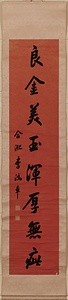 良金美玉渾厚無疵
合肥李鴻章